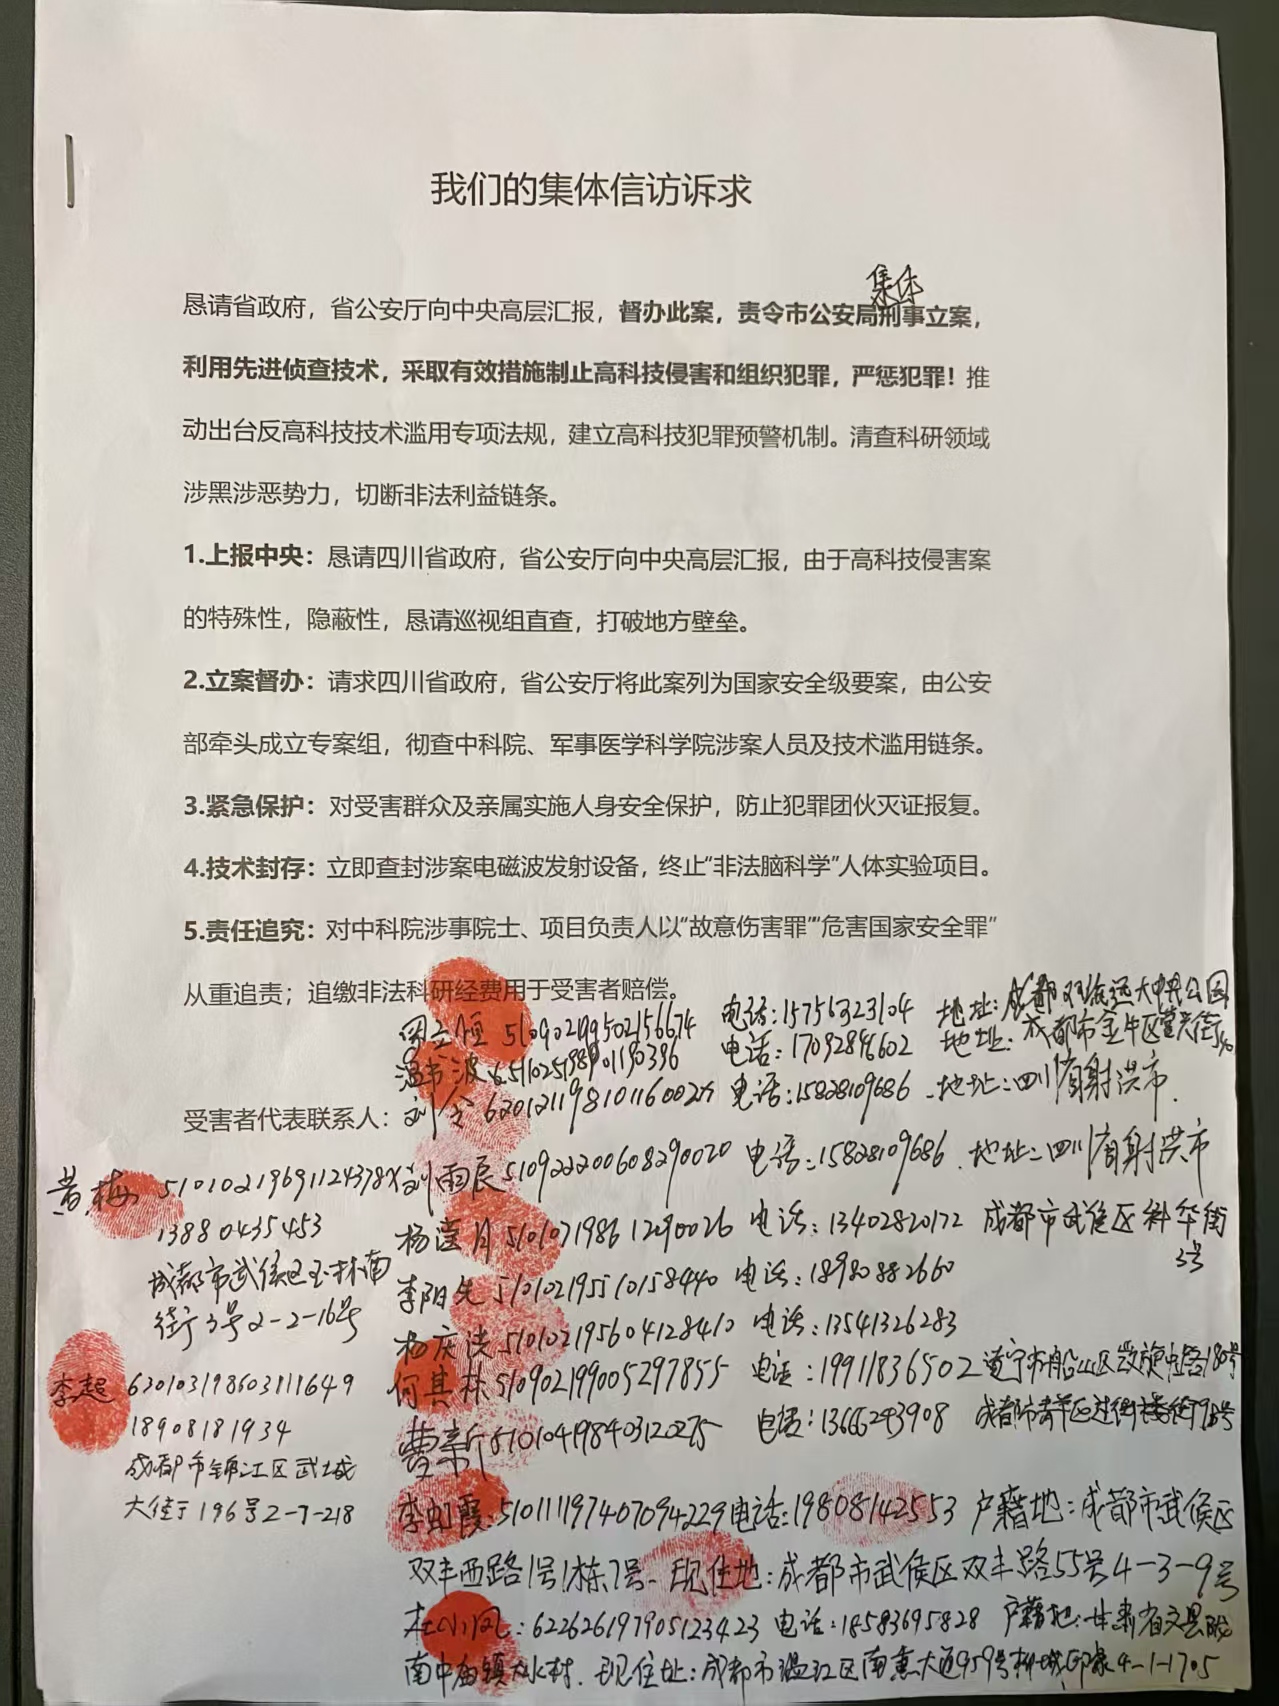 我们的集体信访诉求
集体
恳请省政府，省公安厅向中央高层汇报，督办此案，责令市公安局刑事立案，
利用先进侦查技术，采取有效措施制止高科技侵害和组织犯罪，严惩犯罪！推
动出台反高科技技术滥用专项法规，建立高科技犯罪预警机制。清查科研领域
涉黑涉恶势力，切断非法利益链条。
1.上报中央：恳请四川省政府，省公安厅向中央高层汇报，由于高科技侵害案
的特殊性，隐蔽性，恳请巡视组直查，打破地方壁垒。
2.立案督办：请求四川省政府，省公安厅将此案列为国家安全级要案，由公安
部牵头成立专案组，彻查中科院、军事医学科学院涉案人员及技术滥用链条。
3.紧急保护：对受害群众及亲属实施人身安全保护，防止犯罪团伙灭证报复。
4.技术封存：立即查封涉案电磁波发射设备，终止“非法脑科学”人体实验项目。
5.责任追究：对中科院涉事院士、项目负责人以“故意伤害罪”“危害国家安全罪”
从重追责；追缴非法科研经费用于受害者赔偿。
510902199502156674 电话：15756323104 地址：成都 远大中央公园
温书波 电话：17092896602 地址：成都市金牛区
受害者代表联系人：刘 电话：15828109686 地址：四川省射洪市
刘雨辰 510922200608290020 电话：15828109686 地址：四川省射洪市
杨滢月 510107198612090026 电话：13402820172 成都市武侯区科华街
3号
李阳先 510102195510158440 电话：18980882660
杨庆法 510102195604128410 电话：13541326283
何其林 510902199005297855 电话：19911836502 遂宁市船山区 180号
曹新 510104198403120275 电话：13666293908 成都市青羊区
李虹霞 510111197407094229 电话：19808142553 户籍地：成都市武侯区
双丰西路1号1栋7号 现住地：成都市武侯区双丰路55号4-3-9号
杜小凤：622626197905123423 电话：18583695828 户籍地：甘肃省文县
南中庙镇 水村 现住址：成都市温江区南熏大道959号 4-1-1705
黄梅
13880435453
成都市武侯区玉林南
街3号2-2-16号
李超 620103198603111649
18908181934
成都市锦江区武城
大街196号2-7-218